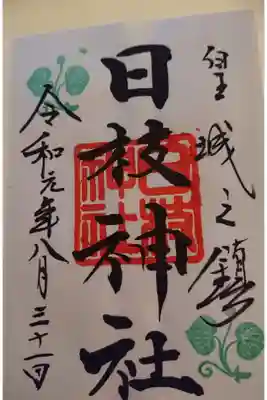 皇城之鎮
日枝神社
令和元年八月三十一日